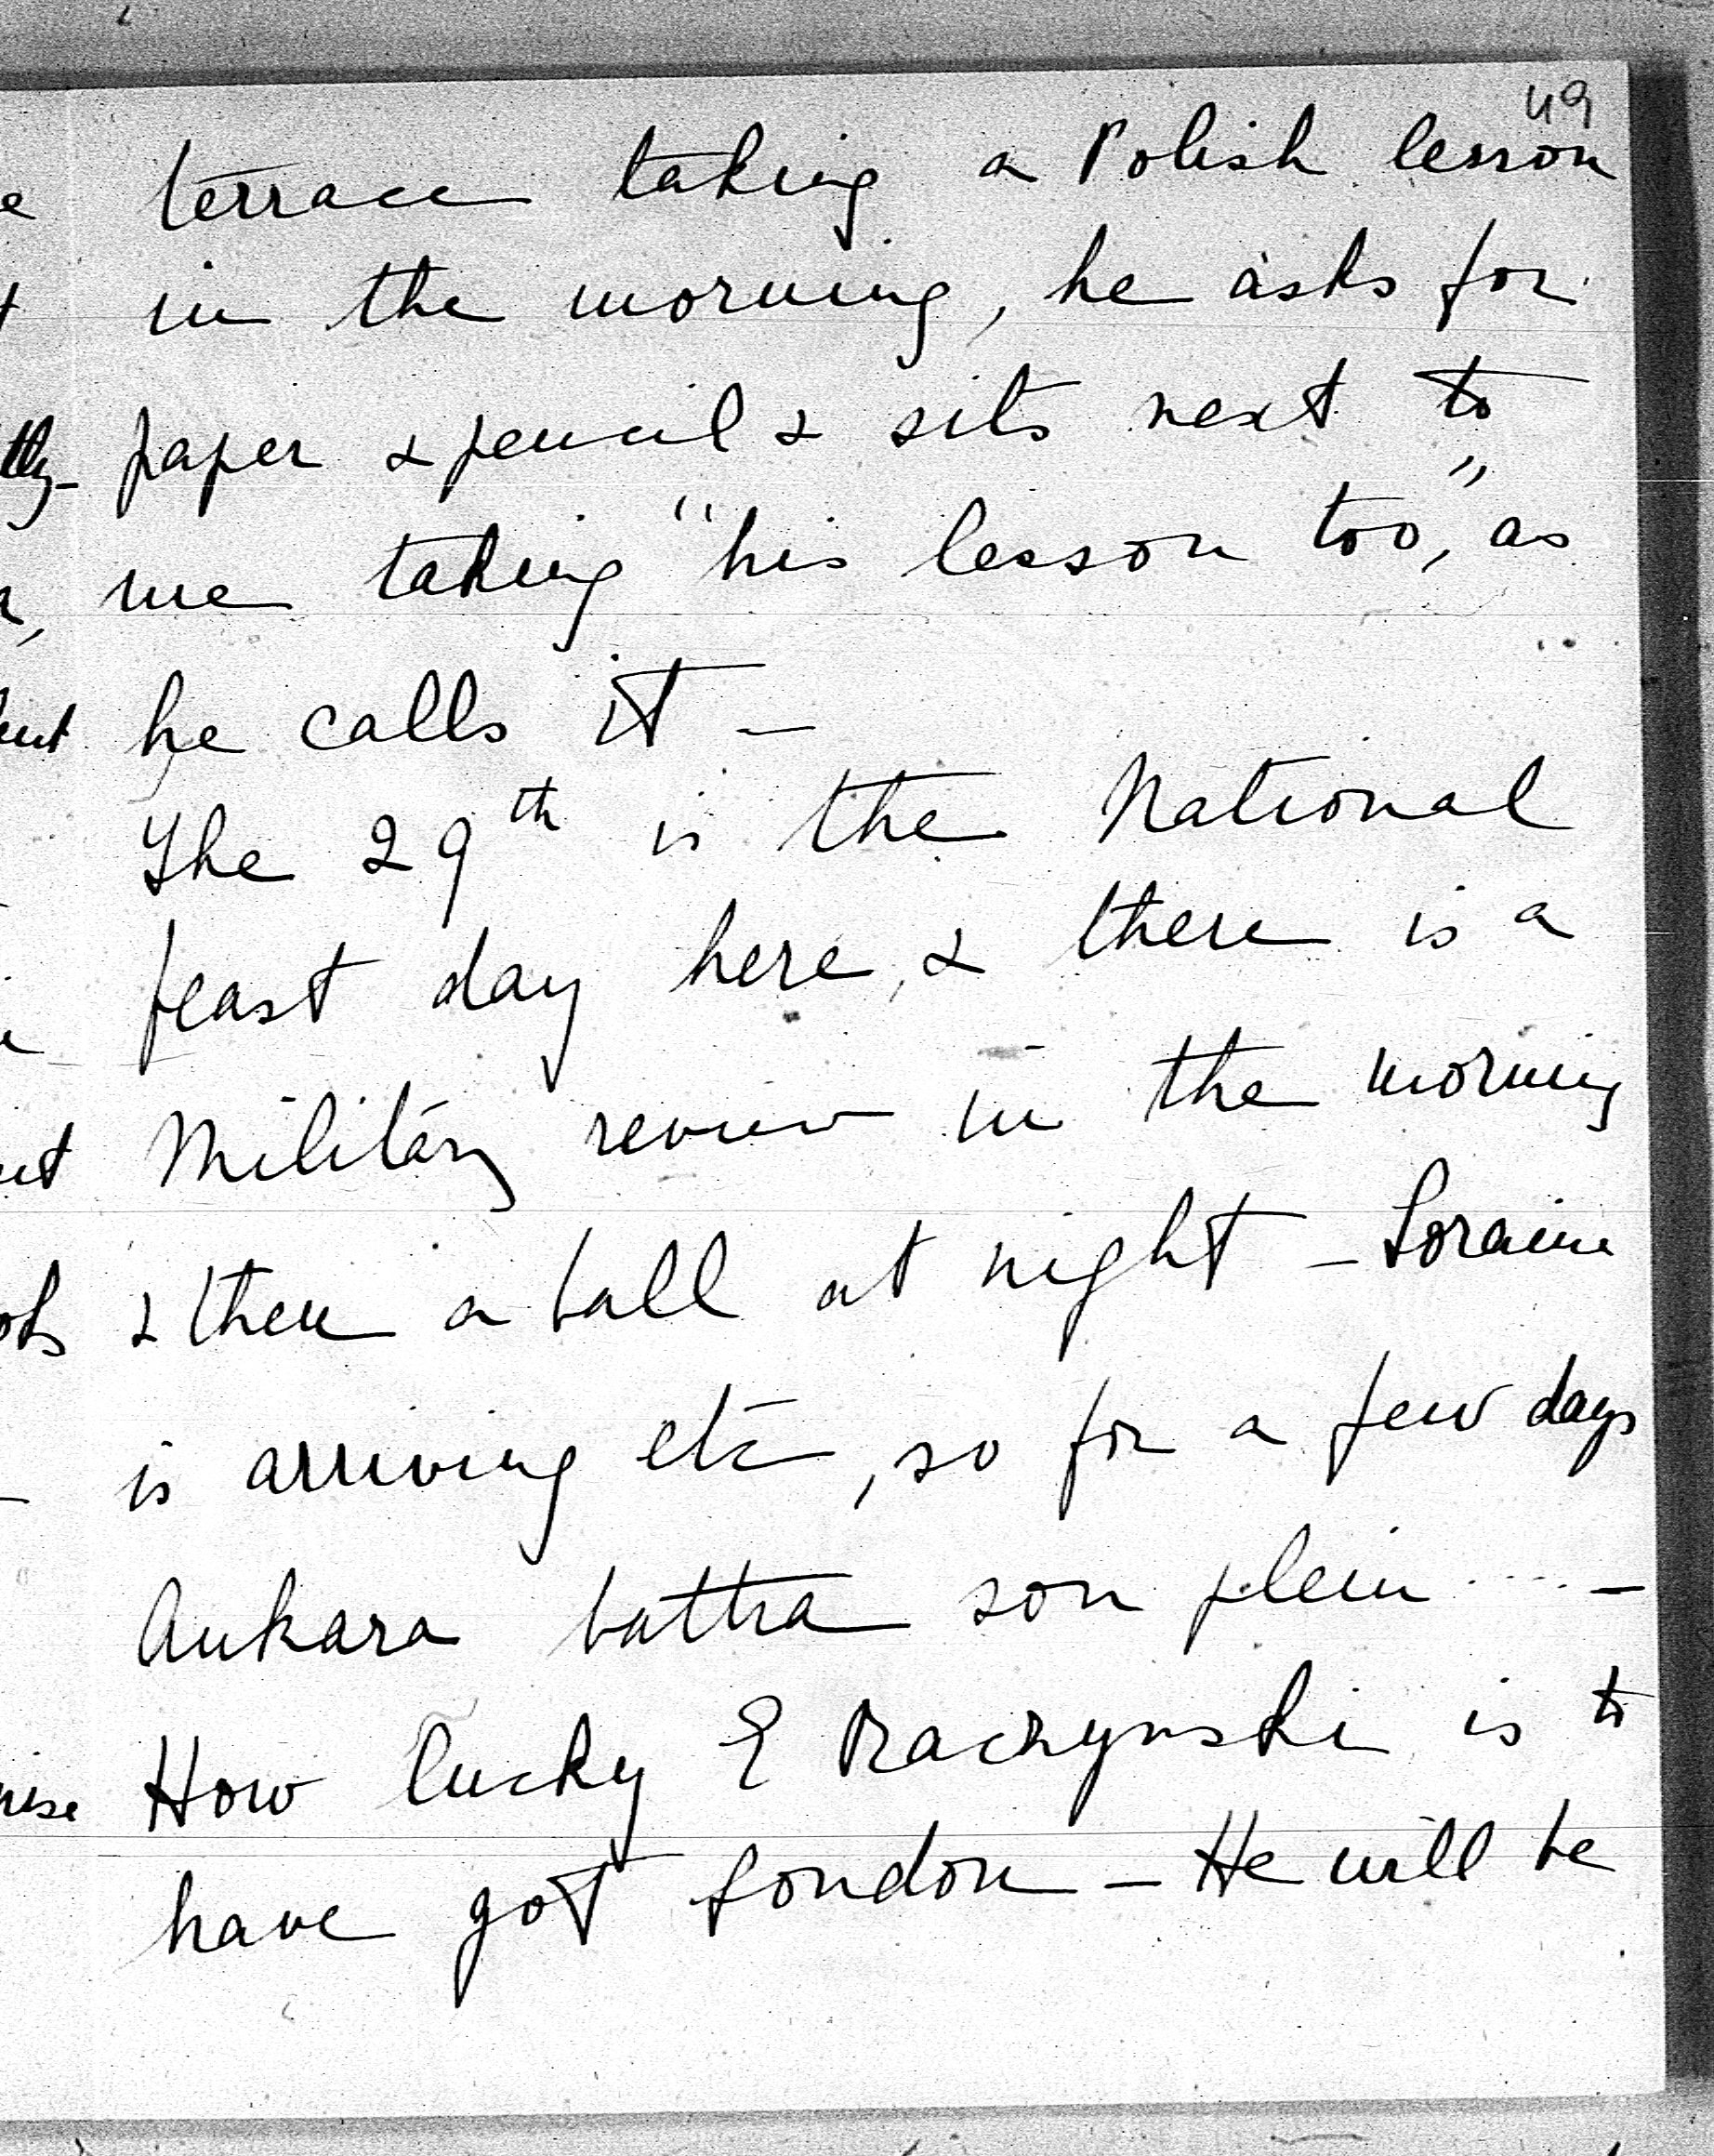 49
terrace taking a Polish lesson
in the morning, he asks for
paper & pencil & sits next to
me taking "his lesson too," as
he calls it —
The 29th is the National
feast day here, & there is a
Military review in the morning
& then a ball at night — Loraine
is arriving etc, so for a few days
Ankara battra son plein .... —
How lucky E Raczynski is to
have got London — He will be